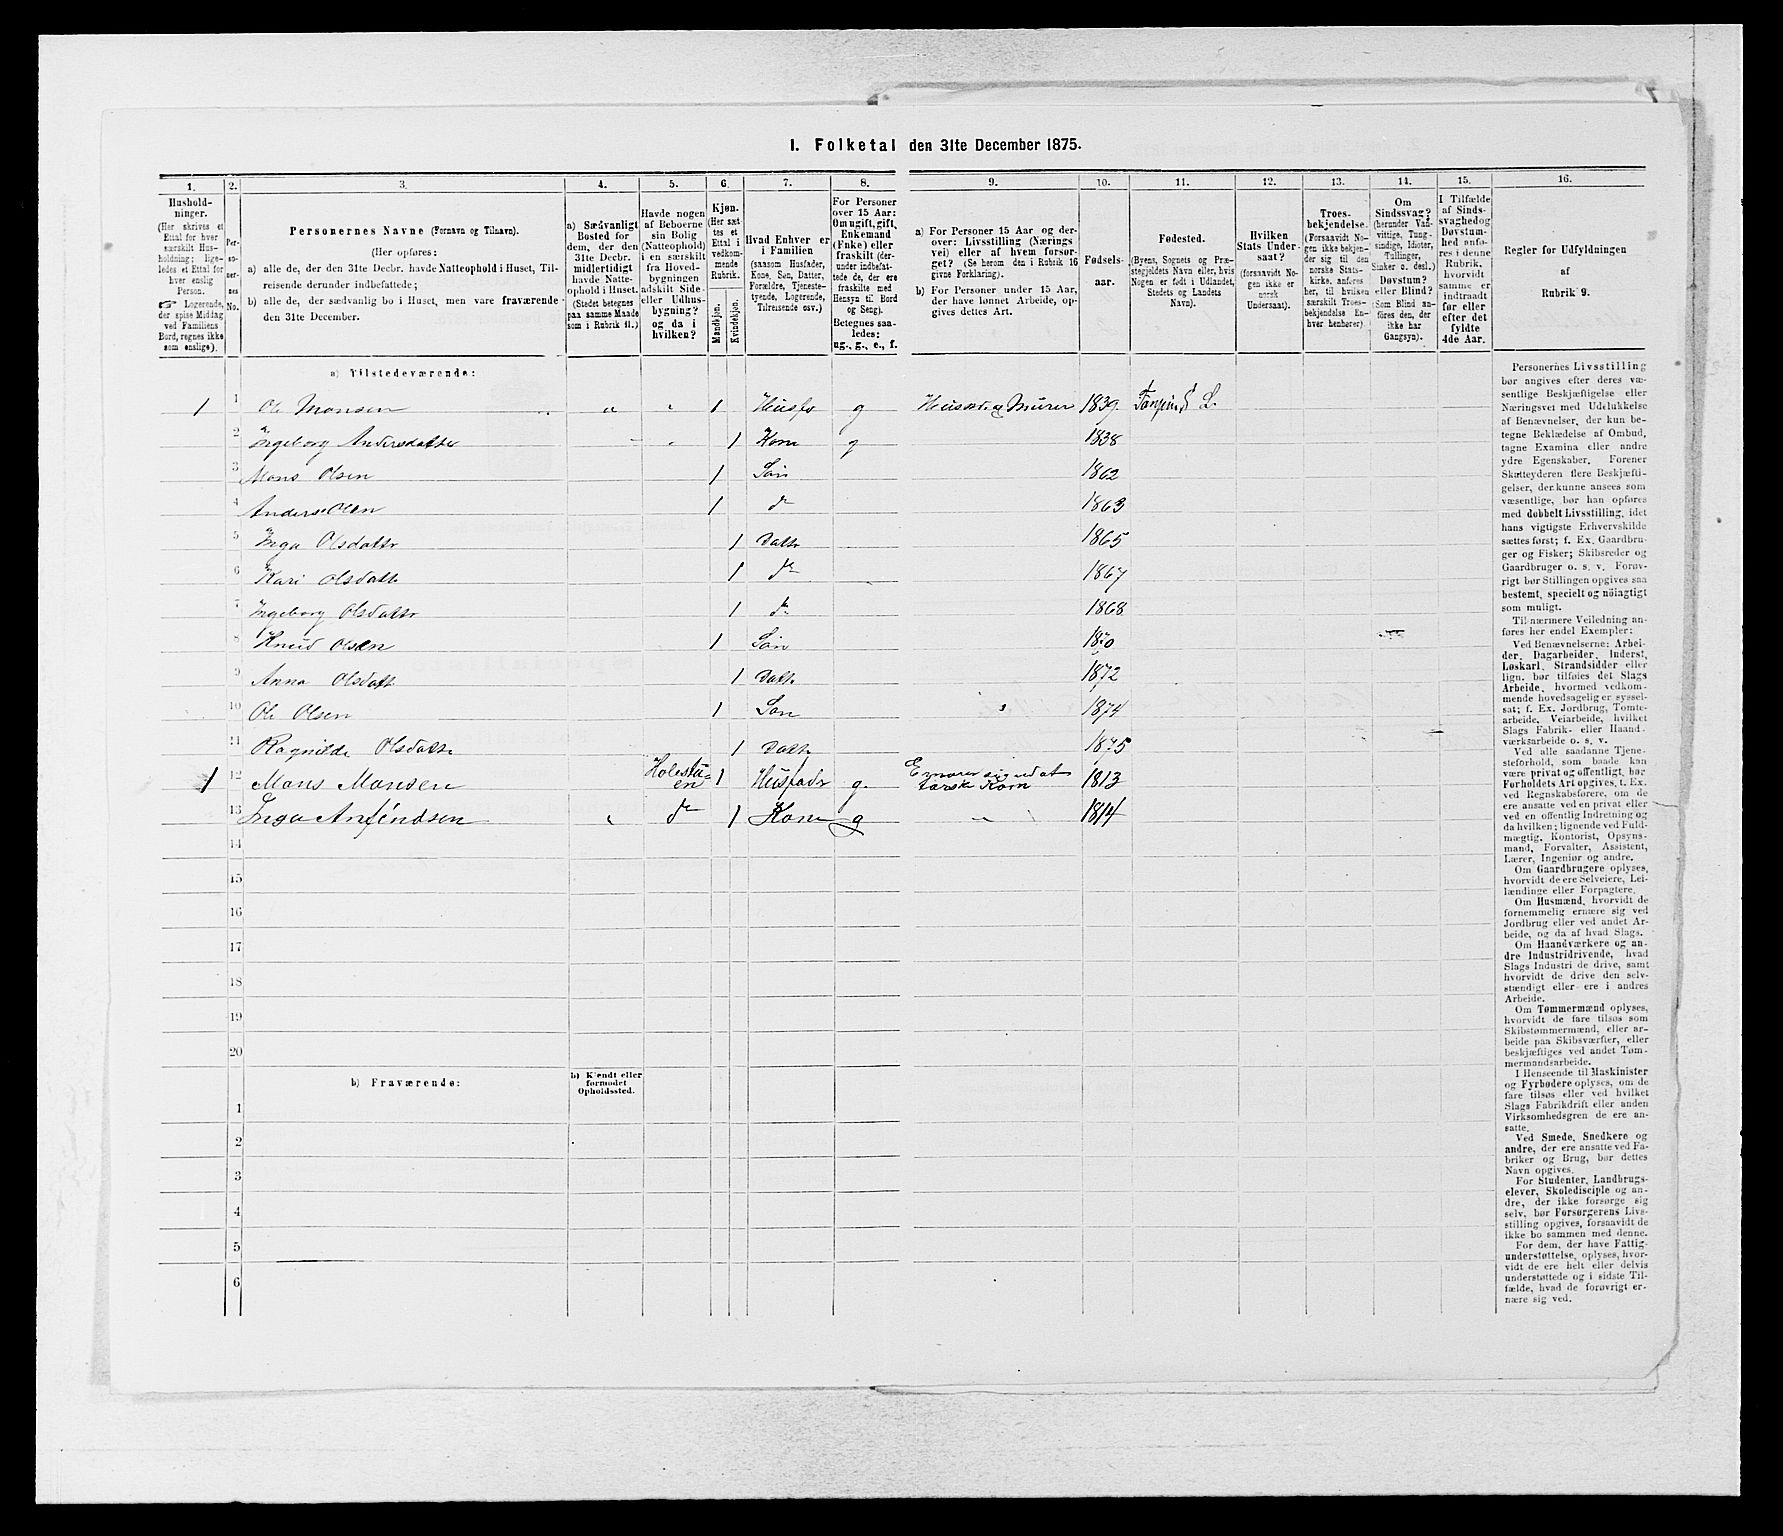 I. Folketal den 31te December 1875.
1. 2. 3. 4. 5. 6. 7. 8. 9. 10. 11. 12. 13. 14. 15. 16.
Hushold-
ninger.
(Her skrives et
Ettal for hver
særskilt Hus-
holdning; lige-
ledes et Ettal for
hver enslig
Person.
☞ Logerende,
der spise Middag
ved Familiens
Bord, regnes ikke
som enslige).
Per-
so-
ner-
nes
No.
Personernes Navne (Fornavn og Tilnavn).
(Her opføres:
a) alle de, der den 31te Decbr. havde Natteophold i Huset, Til-
reisende derunder indbefattede;
b) alle de, der sædvanlig bo i Huset, men vare fraværende
den 31te December.
a) Sædvanligt
Bosted for
dem, der den
31te Decbr.
midlertidigt
havde Natte-
ophold i Huset.
(Stedet betegnes
paa samme Maade
som i Rubrik 11.)
Havde nogen
af Beboerne
sin Bolig
(Natteophold)
i en særskilt
fra Hoved-
bygningen
adskilt Side-
eller Udhus-
bygning?
og da i
hvilken?
Kjøn.
(Her sæt
tes et
Ettal i
vedkom-
mende
Rubrik.
Mandkjøn.
Kvindekjøn.
Hvad Enhver er
i Familien
(saasom Husfader,
Kone, Søn, Datter,
Forældre, Tjeneste-
tyende, Logerende,
Tilreisende osv.)
For Personer
over 15 Aar:
Om ugift, gift,
Enkemand
(Enke) eller
fraskilt (der-
under indbefat-
tede de, der ere
fraskilte med
Hensyn til Bord
og Seng).
Betegnes saa-
ledes:
ug., g., e., f.
a) For Personer 15 Aar og der-
over: Livsstilling (Nærings
vei) eller af hvem forsør-
get? (Se herom den i Rubrik 16
givne Forklaring).
b) For Personer under 15 Aar,
der have lønnet Arbeide, op-
gives dettes Art.
Fødsels-
aar.
Fødested.
(Byens, Sognets og Præ-
stegjeldets Navn eller, hvis
Nogen er født i Udlandet,
Stedets og Landets
Navn).
Hvilken
Stats Under-
saat?
(forsaavidt No-
gen ikke er
norsk
Undersaat).
Troes-
bekjendelse.
(Forsaavidt No-
gen ikke bekjen-
der sig til den
norske Stats-
kirke, anføres
her, til hvilken
særskilt Troes-
bekjendelse En-
hver henhører).
Om
Sindssvag?
(herunder Van-
vittige, Tung-
sindige, Idioter,
Tullinger,
Sinker o. desl.)
Døvstum?
eller Blind?
(Som Blind an-
føres den, der
ikke har
Gangsyn).
I Tilfælde
af Sinds-
svaghed og
Døvstum-
hed anfø-
res i denne
Rubrik,
hvorvidt
samme er
indtraadt
før eller
efter det
fyldte
4de Aar.
Regler for Udfyldningen
af
Rubrik 9.
a) Tilstedeværende:
1 1 Ole Monsen „ „ 1 Husfa g Husmd. og Murer 1839.
2 Ingeborg Andersdatter „ „ 1 Kone g 1838
3 Mons Olsen 1 Søn 1862
4 Anders Olsen 1 do 1863
5 Inga Olsdattr 1 Dattr 1865
6 Kari Olsdatt 1 do 1867
7 Ingeborg Olsdattr 1 do 1868
8 Knud Olsen 1 Søn 1870
9 Anna Olsdatt 1 Datt 1872
10 Ole Olsen 1 Søn 1874
11 Ragnilde Olsdatt 1 Datt 1875
1 12 Mons Monsen 1 Husfadr g. 1813
13 Inga „ do 1 Kone g „ 1814
14
15
16
17
18
19
20
b) Fraværende:
b) Kjendt eller
formodet
Opholdssted.
1
2
3
4
5
6
Personernes Livsstilling
bør angives efter deres væ-
sentlige Beskjæftigelse eller
Næringsvei med Udelukkelse
af Benævnelser, der kun be-
tegne Beklædelse af Ombud,
tagne Examina eller andre
ydre Egenskaber. Forener
Skatteyderen flere Beskjæfti-
gelser, der kunne ansees som
væsentlige, bør han opføres
med dobbelt Livsstilling, idet
hans vigtigste Erhvervskilde
sættes først; f. Ex. Gaardbru-
ger og Fisker; Skibsreder og
Gaardbruger o. s. v. Forøv-
rigt bør Stillingen opgives saa
bestemt, specielt og nøiagtigt
som muligt.
Til nærmere Veiledning an-
føres her endel Exempler:
Ved Benævnelserne: Arbei-
der, Dagarbeider, Inderst,
Løskarl, Strandsidder eller
lign. bør tilføies det Slags
Arbeide, hvormed vedkom-
mende hovedsagelig er syssel-
sat; f. Ex. Jordbrug, Tomte-
arbeide, Veiarbeide, hvilket
Slags Fabrik- eller Haand
værksarbeide o. s. v.
Ved alle saadanne Tjene-
steforhold, som baade kan
være privat og offentligt, bør
Forholdets Art opgives, f. Ex.
ved Regnskabsførere, om de
ere ansatte ved en privat eller
ved en offentlig Indretning og
da hvilken; lignende ved Fuld-
mægtig, Kontorist, Opsyns-
mand, Forvalter, Assistent,
Lærer, Ingeniør og andre.
Om Gaardbrugere oplyses,
hvorvidt de ere Selveiere, Lei-
lændinge eller Forpagtere.
Om Husmænd, hvorvidt de
fornemmelig ernære sig ved
Jordbrug eller ved andet Ar-
beide, og da af hvad Slags.
Om Haandværkere og an-
dre Industridrivende, hvad
Slags Industri de drive, samt
hvorvidt de drive den selv-
stændigt eller ere i andres
Arbeide.
Om Tømmermænd oplyses,
hvorvidt de fare tilsøs som
Skibstømmermænd, eller ar-
beide paa Skibsværfter, eller
beskjæftiges ved andet Tøm-
mermandsarbeide.
I Henseende til Maskinister
og Fyrbødere oplyses, om de
fare tilsøs eller ved hvilket
Slags Fabrikdrift eller anden
Virksomhedsgren de ere an-
satte.
Ved Smede, Snedkere og
andre, der ere ansatte ved Fa-
briker og Brug, bør dettes
Navn opgives.
For Studenter, Landbrugs-
elever, Skoledisciple og an-
dre, der ikke forsørge sig
selv, bør Forsørgerens Livs-
stilling opgives, forsaavidt de
ikke bo sammen med denne.
For dem, der have Fattig-
understøttelse, oplyses, hvor-
vidt de ere helt eller delvis
understøttede og i sidste Til-
fælde, hvad de forøvrigt er-
nære sig ved.